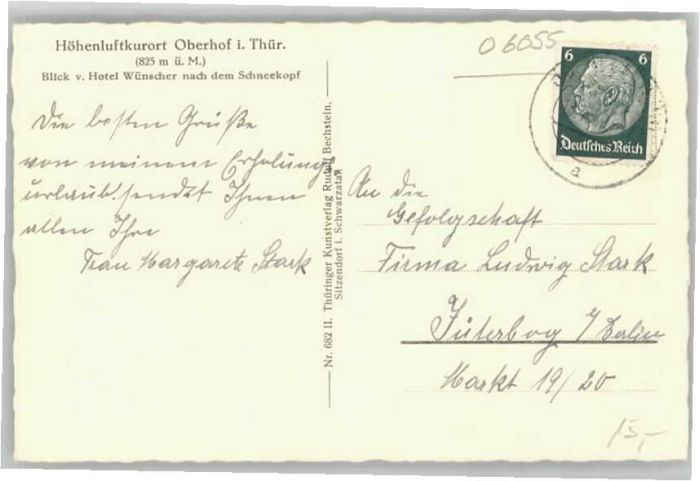 Höhenluftkurort Oberhof i. Thür.
(825 m ü. M.)
Blick v. Hotel Wünscher nach dem Schneekopf
Die besten Grüße
von meinem Erholungs-
urlaub sendet Ihnen
allen Ihre
Frau Margarete Stark
Nr. 682 II. Thüringer Kunstverlag Rudolf Bechstein,
Sitzendorf i. Schwarzatal.
06055
6 6
Deutsches Reich
a
An die
Gefolgschaft
Firma Ludwig Stark
Jüterbog / Berlin
Markt 19/20
15,-